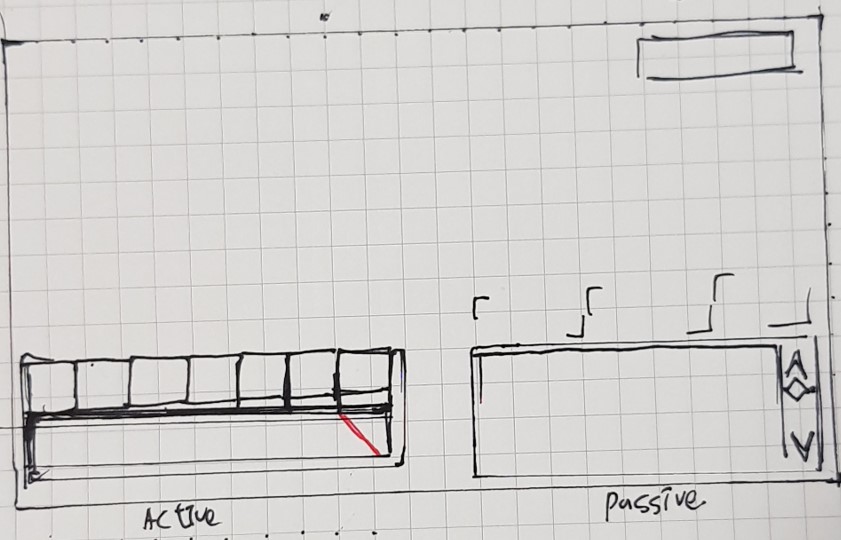 Active
passive